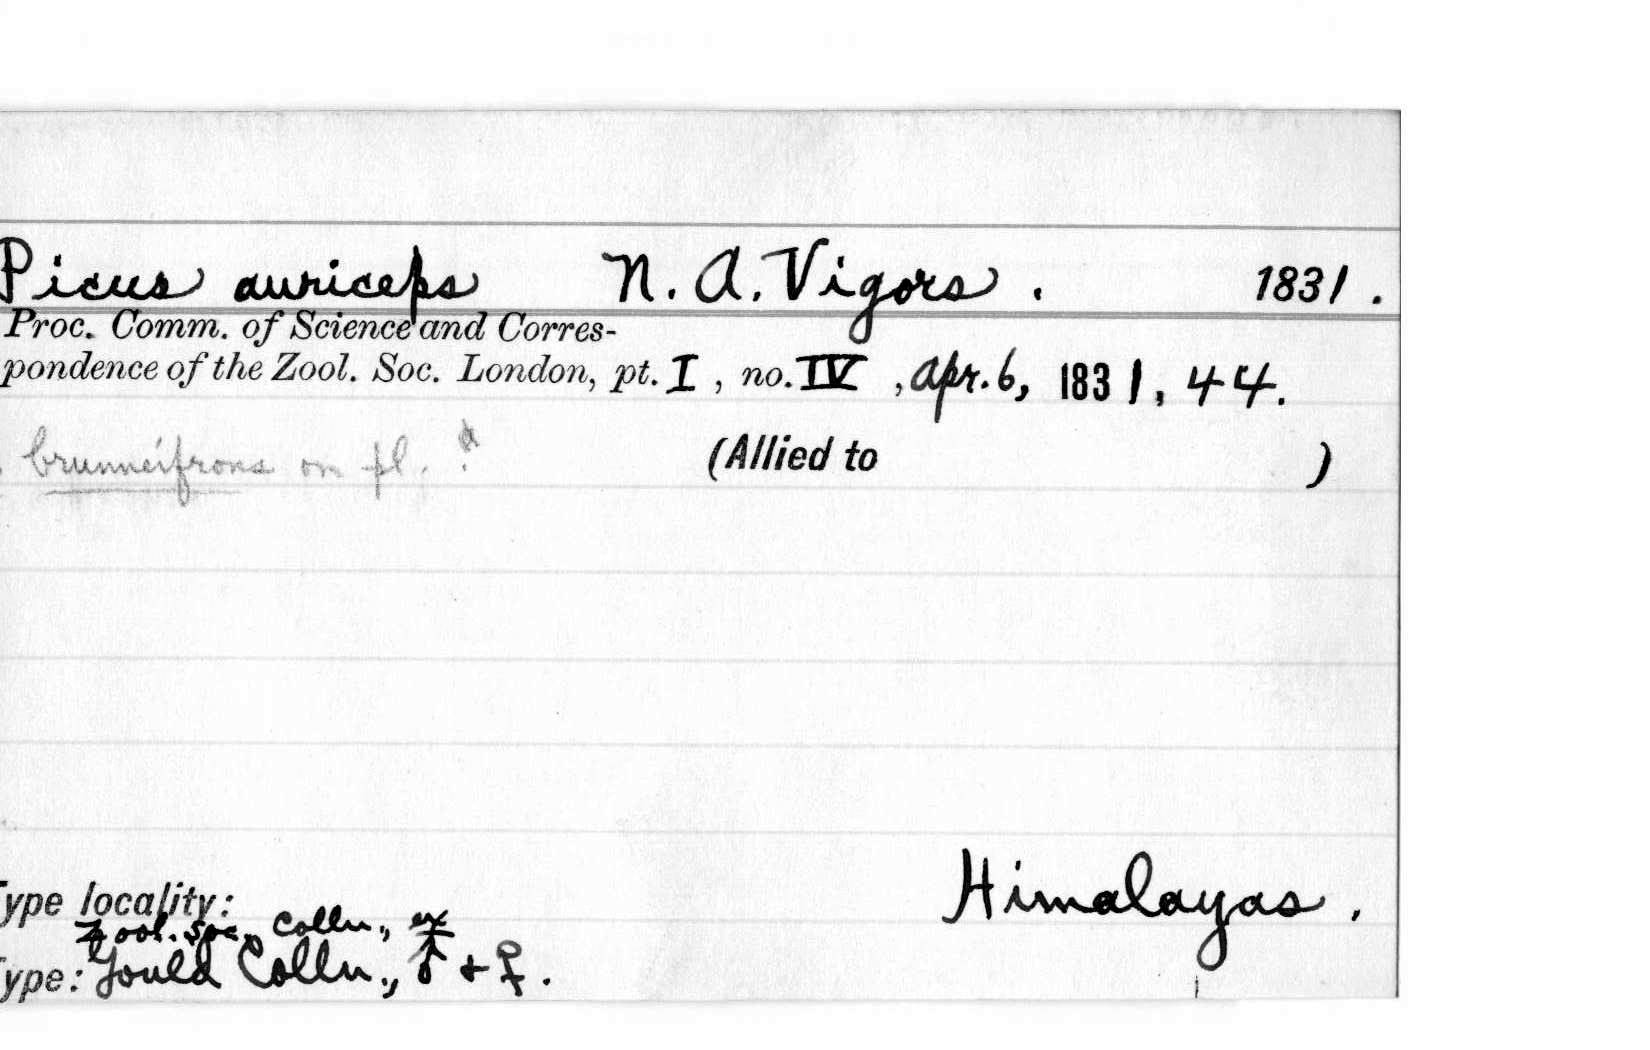 Picus auriceps N. A. Vigors . 1831 .
Proc. Comm. of Science and Corres-
pondence of the Zool. Soc. London, pt. I , no. IV , Apr. 6, 1831, 44.
brunneifrons on pl. ! (Allied to )
Type locality: Himalayas .
Zool. Soc. Colln., ex
Type: Gould Colln., ♂ + ♀ .